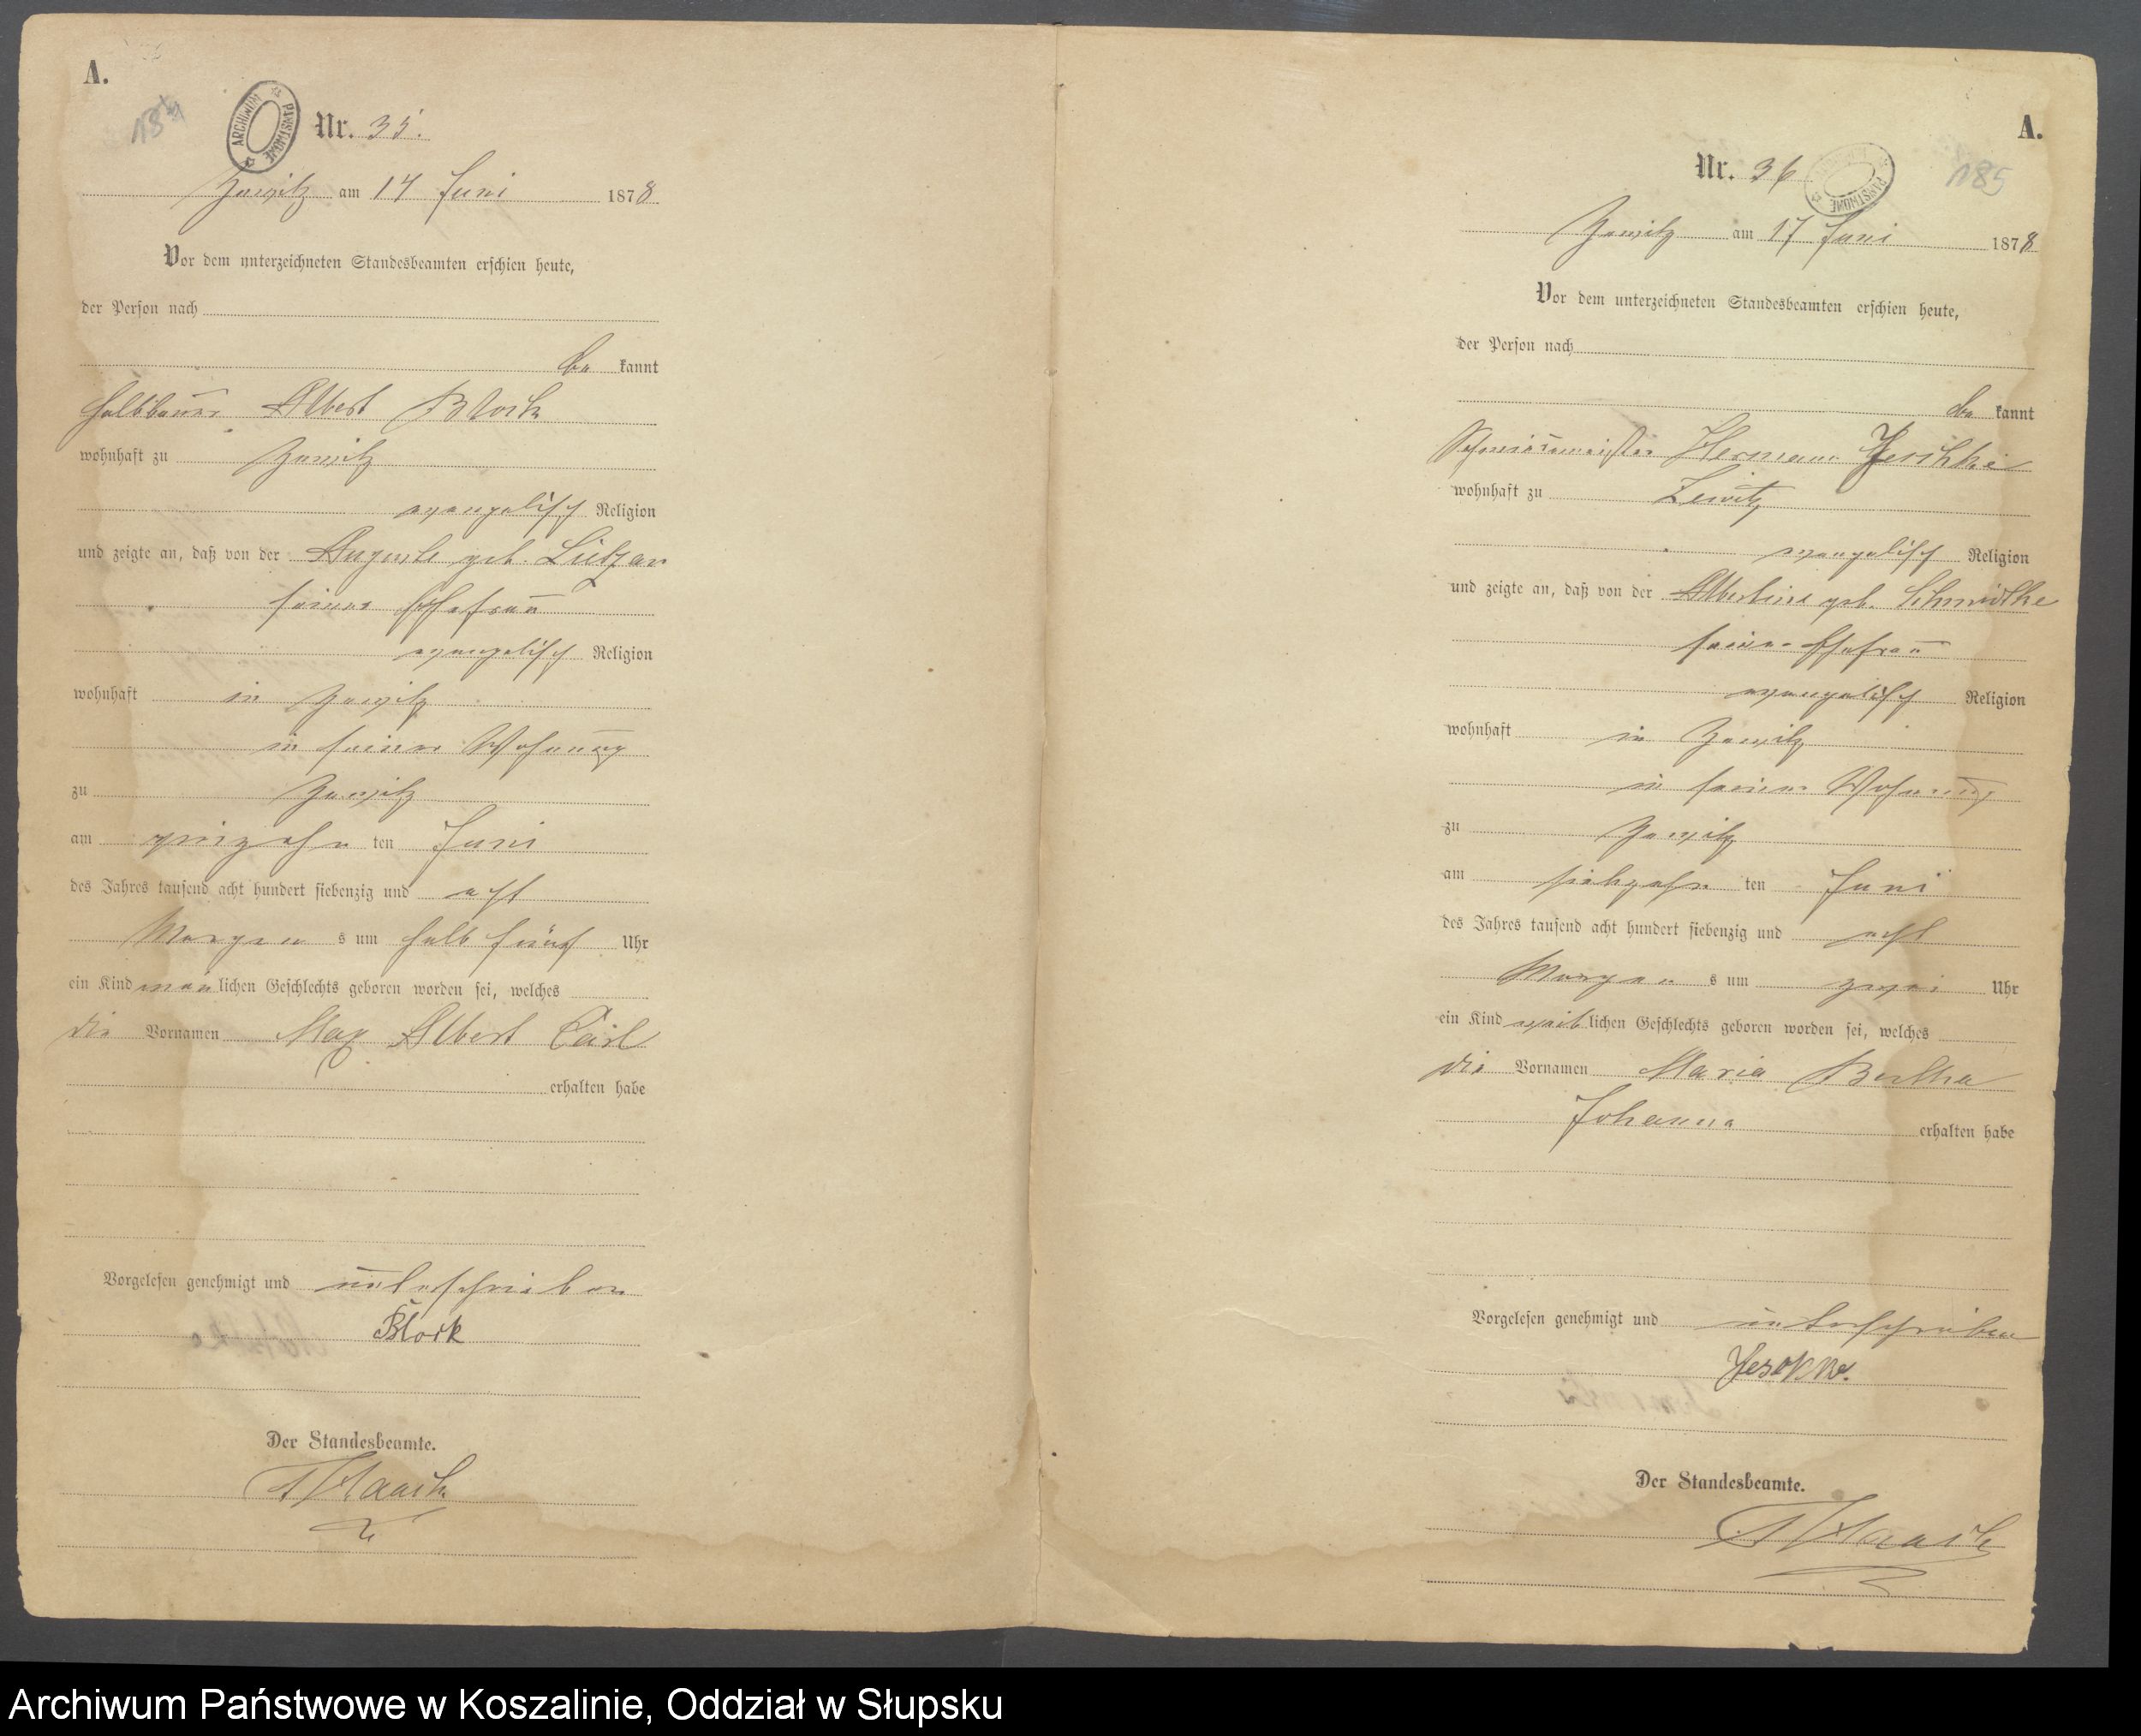 A.
184
ARCHIWUM PAŃSTWOWE
Nr. 35.
Zewitz am 14 Juni 1878
Vor dem unterzeichneten Standesbeamten erschien heute,
der Person nach
be kannt
Halbbauer Albert Block
wohnhaft zu Zewitz
evangelisch Religion
und zeigte an, daß von der Auguste geb. Lietzau
seiner Ehefrau
evangelisch Religion
wohnhaft in Zewitz
in seiner Wohnung
zu Zewitz
am vierzehn ten Juni
des Jahres tausend acht hundert siebenzig und acht
Morgen s um halb fünf Uhr
ein Kind män lichen Geschlechts geboren worden sei, welches
die Vornamen Max Albert Carl
erhalten habe
Vorgelesen genehmigt und unterschrieben
Block
Der Standesbeamte.
A.
185
PAŃSTWOWE
Nr. 36
Zewitz am 17 Juni 1878
Vor dem unterzeichneten Standesbeamten erschien heute,
der Person nach
be kannt
Schmiedemeister Hermann Jeschke
wohnhaft zu Zewitz
evangelisch Religion
und zeigte an, daß von der Albertine geb. Schmidtke
seiner Ehefrau
evangelisch Religion
wohnhaft in Zewitz
in seiner Wohnung
zu Zewitz
am siebzehn ten Juni
des Jahres tausend acht hundert siebenzig und acht
Morgen s um zwei Uhr
ein Kind weib lichen Geschlechts geboren worden sei, welches
die Vornamen Maria Bertha
Johanna erhalten habe
Vorgelesen genehmigt und unterschrieben
Jeschke.
Der Standesbeamte.
Archiwum Państwowe w Koszalinie, Oddział w Słupsku